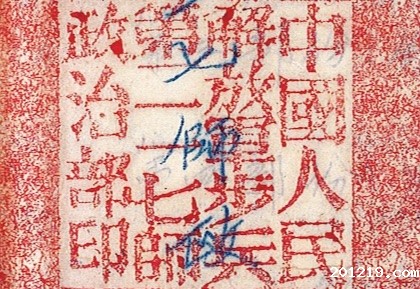 中國人民
解放軍步兵
第一一七師
政治部印
師
政
201219.com